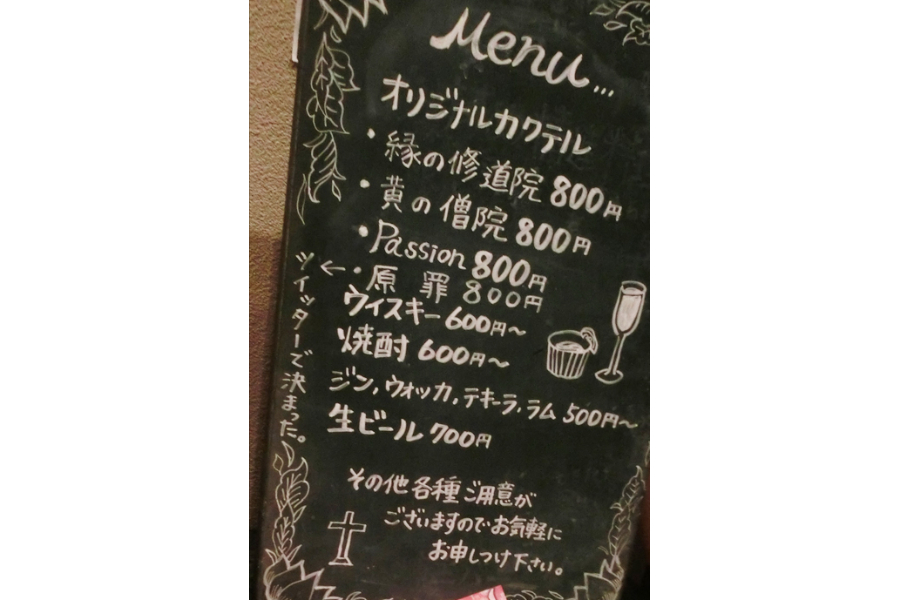 Menu...
オリジナルカクテル
・縁の修道院 800円
・黄の僧院 800円
・Passion 800円
←・原罪 800円
ウイスキー 600円～
焼酎 600円～
ジン,ウォッカ,テキーラ,ラム 500円～
生ビール 700円
ツイッターで決まった。
その他各種ご用意が
ございますのでお気軽に
お申しつけ下さい。